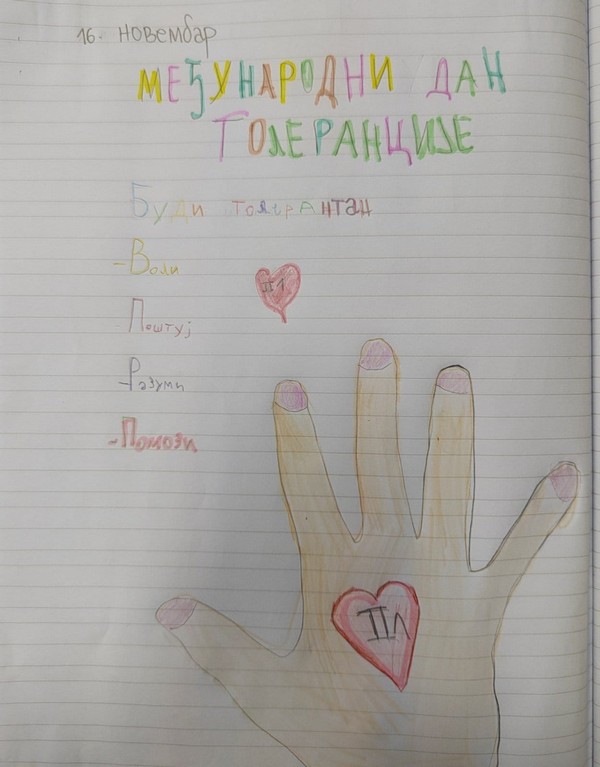 16. новембар
МЕЂУНАРОДНИ ДАН
ТОЛЕРАНЦИЈЕ
Буди толерантан
-Воли
II1
-Поштуј
-Разуми
-Помози
II1